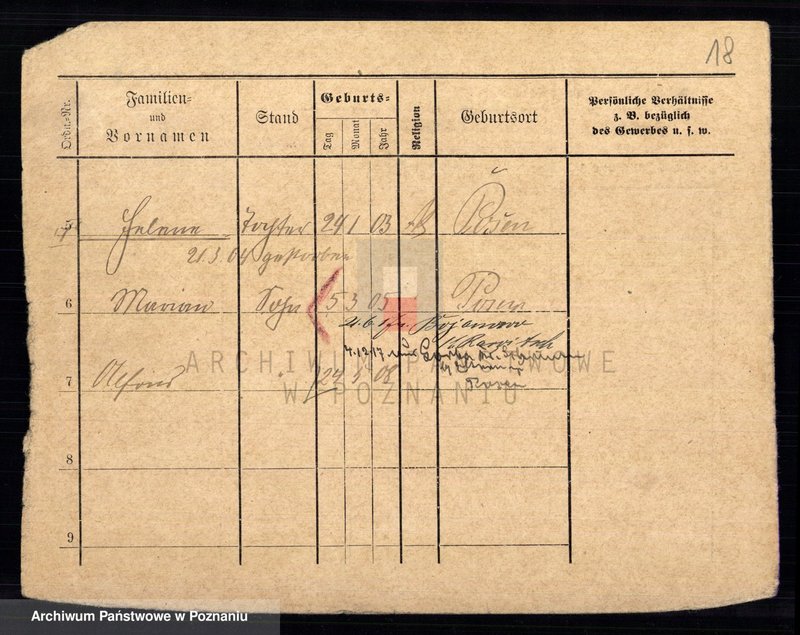 18
Ordn.=Nr.
Familien=
und
Vornamen
Stand
Geburts=
Tag
Monat
Jahr
Religion
Geburtsort
Persönliche Verhältnisse
z. B. bezüglich
des Gewerbes u. s. w.
5 Helene Tochter 24 1 03 Posen
21.3.04 gestorben
6 Marian Sohn 5 3 05 Posen
Bojanowo
4.12.17
ARCHIWUM PAŃSTWOWE
W POZNANIU
7 Alfons " 24 08
8
9
Archiwum Państwowe w Poznaniu